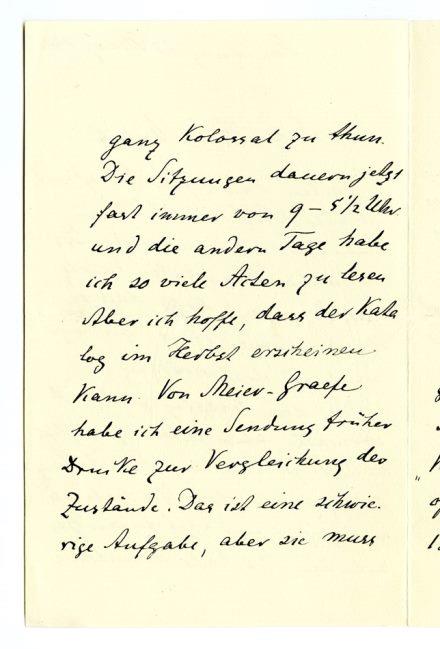 ganz Kolossal zu thun.
Die Sitzungen dauern jetzt
fast immer von 9 – 5 1/2 Uhr
und die andern Tage habe
ich so viele Acten zu lesen
Aber ich hoffe, dass der Kata
log im Herbst erscheinen
kann. Von Meier-Graefe
habe ich eine Sendung früher
Drucke zur Vergleichung der
Zustände. Das ist eine schwie-
rige Aufgabe, aber sie muss